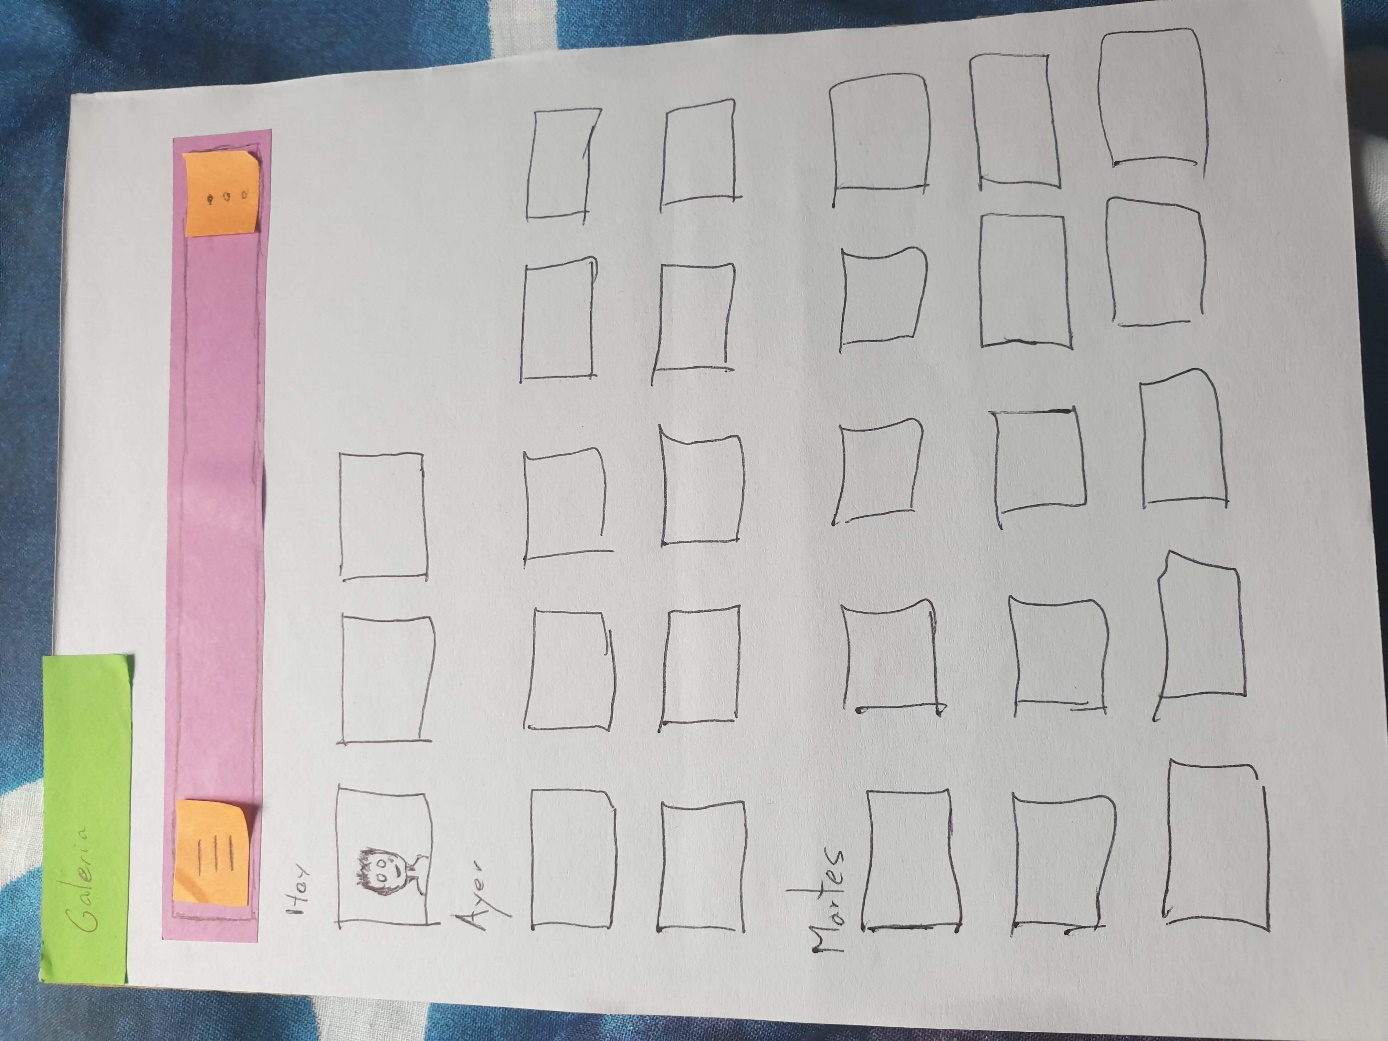 Galeria
Hoy
Ayer
Martes